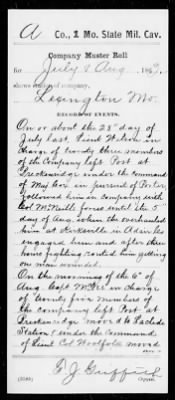 A Co., 1 Mo. State Mil. Cav.
Company Muster Roll
for July & Aug, 186
shows station of company,
Lexington Mo.
RECORD OF EVENTS.
On or about the 28th day of
July last Lieut in
charge of twenty three members
of the Company left Post at
Breckenridge under the command
of May Cox in pursuit of Porter
followed him in company with
Col McNeill forces until the 5
day of Aug when the overhauled
him at Kirksville in Adair Co
engaged him and after three
hours fighting routed him getting
one man wounded.
On the morning of the 6" of
Aug Capt McGee in charge
of twenty five members of
the company left Post at
Breckenridge moved to Laclede
Station & under the Command
of Lieut Col Woolfolk moved
Copyist.